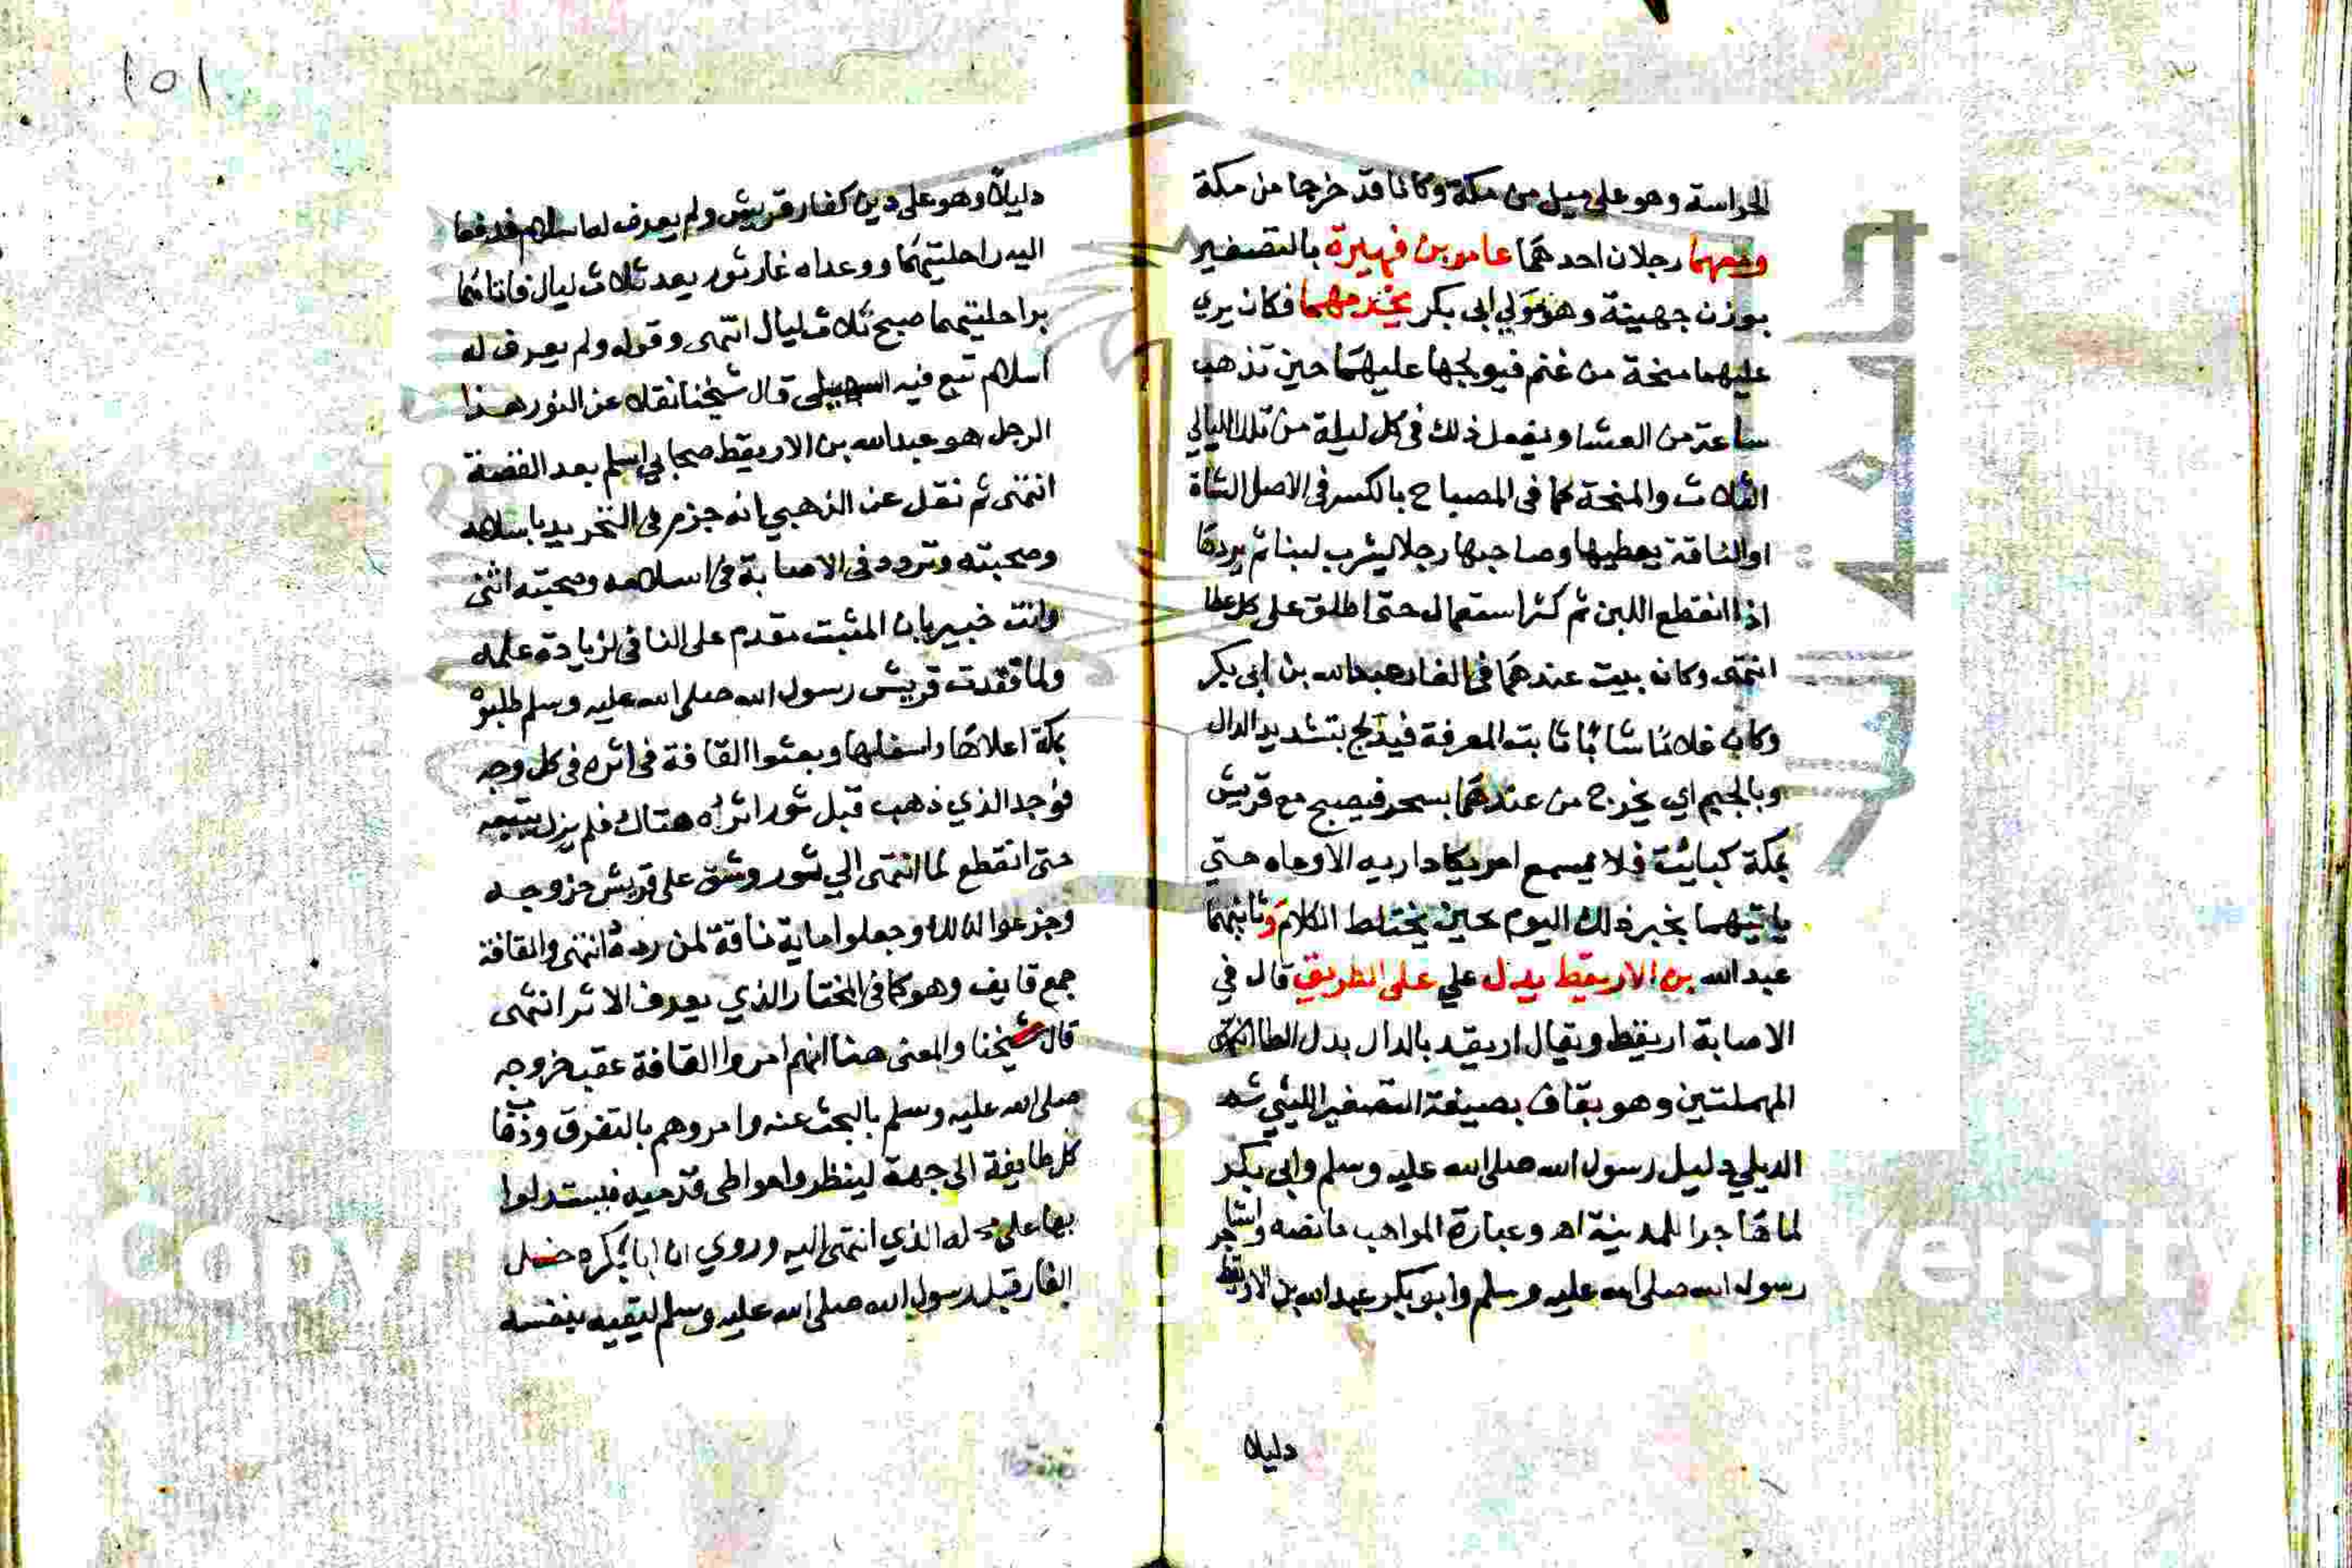 الحراسة وهو على ميل من مكة وكانا قد خرجا من مكة
ومعهما رجلان احدهما عامر بن فهيرة بالتصغير
بوزن جهينة وهو مولي ابى بكر يخدمهما فكان يري
عليهما منحة من غنم فيولجها عليهما حين تذهب
ساعة من العشا ويفعل ذلك فى كل ليلة من تلك الليالي
الثلاث والمنحة كما فى المصباح بالكسر فى الاصل الشاة
او الناقة يعطيها صاحبها رجلا ليشرب لبنا ثم يردها
اذا انقطع اللبن ثم كثر استعمال حتى اطلق على كل عطا
انتهى وكان يبيت عندهما فى الغار عبد الله بن ابى بكر
وكان غلاما شابا ثابت المعرفة فيدلج بتشديد الدال
وبالجيم اي يخرج من عندهما بسحر فيصبح مع قريش
بمكة كبائت فلا يسمع امر يكاد ان به الا وعاه حتي
ياتيهما بخبر ذلك اليوم حين يختلط الكلام وثانيهما
عبد الله بن الاريقط يدل علي على الطريق قال في
الاصابة اريقط ويقال اريقد بالدال بدل الطا
المهملتين وهو بقاف بصيغة التصغير الليثي ثم
الديلي دليل رسول الله صلى الله عليه وسلم وابى بكر
لما هاجرا للمدينة اهـ وعبارة المواهب ما نصه واستاجر
رسول الله صلى الله عليه وسلم وابو بكر عبد الله بن الاريقط
دليلا
101
دليلا وهو على دين كفار قريش ولم يعرف له اسلام فدفعا
اليه راحلتيهما ووعداه غار ثور بعد ثلاث ليال فاتاهما
براحلتيهما صبح ثلاث ليال انتهى وقوله ولم يعرف له
اسلام تبع فيه السهيلى قال شيخنا نقلا عن النور هذا
الرجل هو عبد الله بن الاريقط صحابي اسلم بعد القصة
انتهى ثم نقل عن الذهبي انه جزم فى التجريد باسلامه
وصحبته وتردد فى الاصابة فى اسلامه وصحبته انتهى
وانت خبير بان المثبت مقدم على النافى لزيادة علمه
ولما فقدت قريش رسول الله صلى الله عليه وسلم طلبوه
بمكة اعلاها واسفلها وبعثوا القافة فى اثره فى كل وجه
فوجد الذي ذهب قبل ثور اثره هناك فلم يزل يتبعه
حتى انقطع لما انتهى الي ثور وشق على قريش خروجه
وجزعوا لذلك وجعلوا ماية ناقة لمن رده انتهى والقافة
جمع قايف وهو كما فى المختار الذي يعرف الاثر انتهى
قال شيخنا والمعنى هنا انهم امروا القافة عقب خروجه
صلى الله عليه وسلم بالبحث عنه وامروهم بالتفرق وذهاب
كل طايفة الى جهة لينظروا مواطى قدميه فيستدلوا
بها على محله الذي انتهى اليه وروي ان ابا بكر دخل
الغار قبل رسول الله صلى الله عليه وسلم ليقيه بنفسه